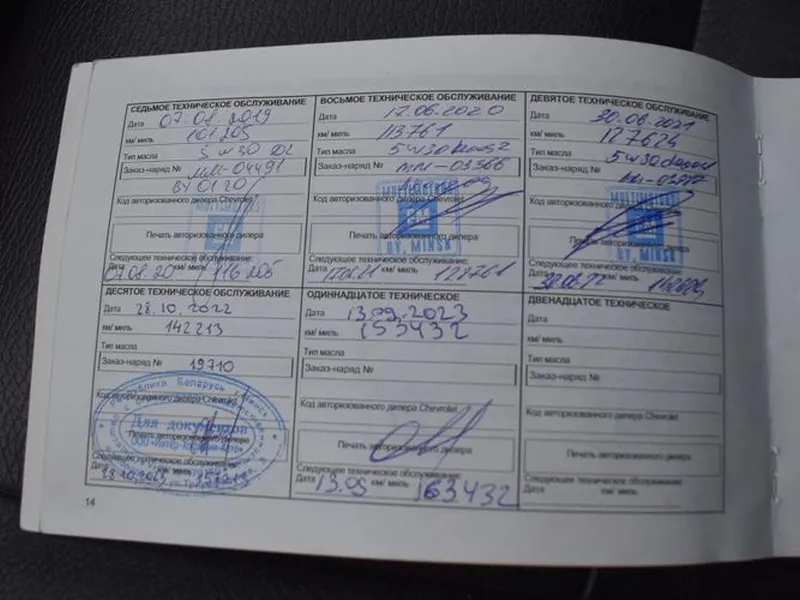 СЕДЬМОЕ ТЕХНИЧЕСКОЕ ОБСЛУЖИВАНИЕ
Дата 07.08.2019
км/ миль 101205
Тип масла 5w30
Заказ-наряд № ММ-04491
BY0120
Код авторизованного дилера Chevrolet
Печать авторизованного дилера
Следующее техническое обслуживание:
Дата 07.08.20 км/ миль 116205
ВОСЬМОЕ ТЕХНИЧЕСКОЕ ОБСЛУЖИВАНИЕ
Дата 17.06.2020
км/ миль 113761
Тип масла 5w30
Заказ-наряд № ММ-03366
Код авторизованного дилера Chevrolet
GM
BY, MINSK
Печать авторизованного дилера
Следующее техническое обслуживание:
Дата км/ миль 127761
ДЕВЯТОЕ ТЕХНИЧЕСКОЕ ОБСЛУЖИВАНИЕ
Дата 30.06.2021
км/ миль 127624
Тип масла 5w30
Заказ-наряд №
Код авторизованного дилера Chevrolet
GM
BY, MINSK
Печать авторизованного дилера
Следующее техническое обслуживание:
Дата 30.06.22 км/ миль
ДЕСЯТОЕ ТЕХНИЧЕСКОЕ ОБСЛУЖИВАНИЕ
Дата 28.10.2022
км/ миль 142213
Тип масла
Заказ-наряд № 19710
Республика Беларусь
Код авторизованного дилера Chevrolet
Для документов
Печать авторизованного дилера
Следующее техническое обслуживание:
Дата 28.10.2023 км/ миль
ОДИННАДЦАТОЕ ТЕХНИЧЕСКОЕ
Дата 13.09.2023
км/ миль 153432
Тип масла
Заказ-наряд №
Код авторизованного дилера Chevrolet
Печать авторизованного дилера
Следующее техническое обслуживание:
Дата 13.09 км/ миль 163432
ДВЕНАДЦАТОЕ ТЕХНИЧЕСКОЕ
Дата
км/ миль
Тип масла
Заказ-наряд №
Код авторизованного дилера Chevrolet
Печать авторизованного дилера
Следующее техническое обслуживание:
Дата км/ миль
14